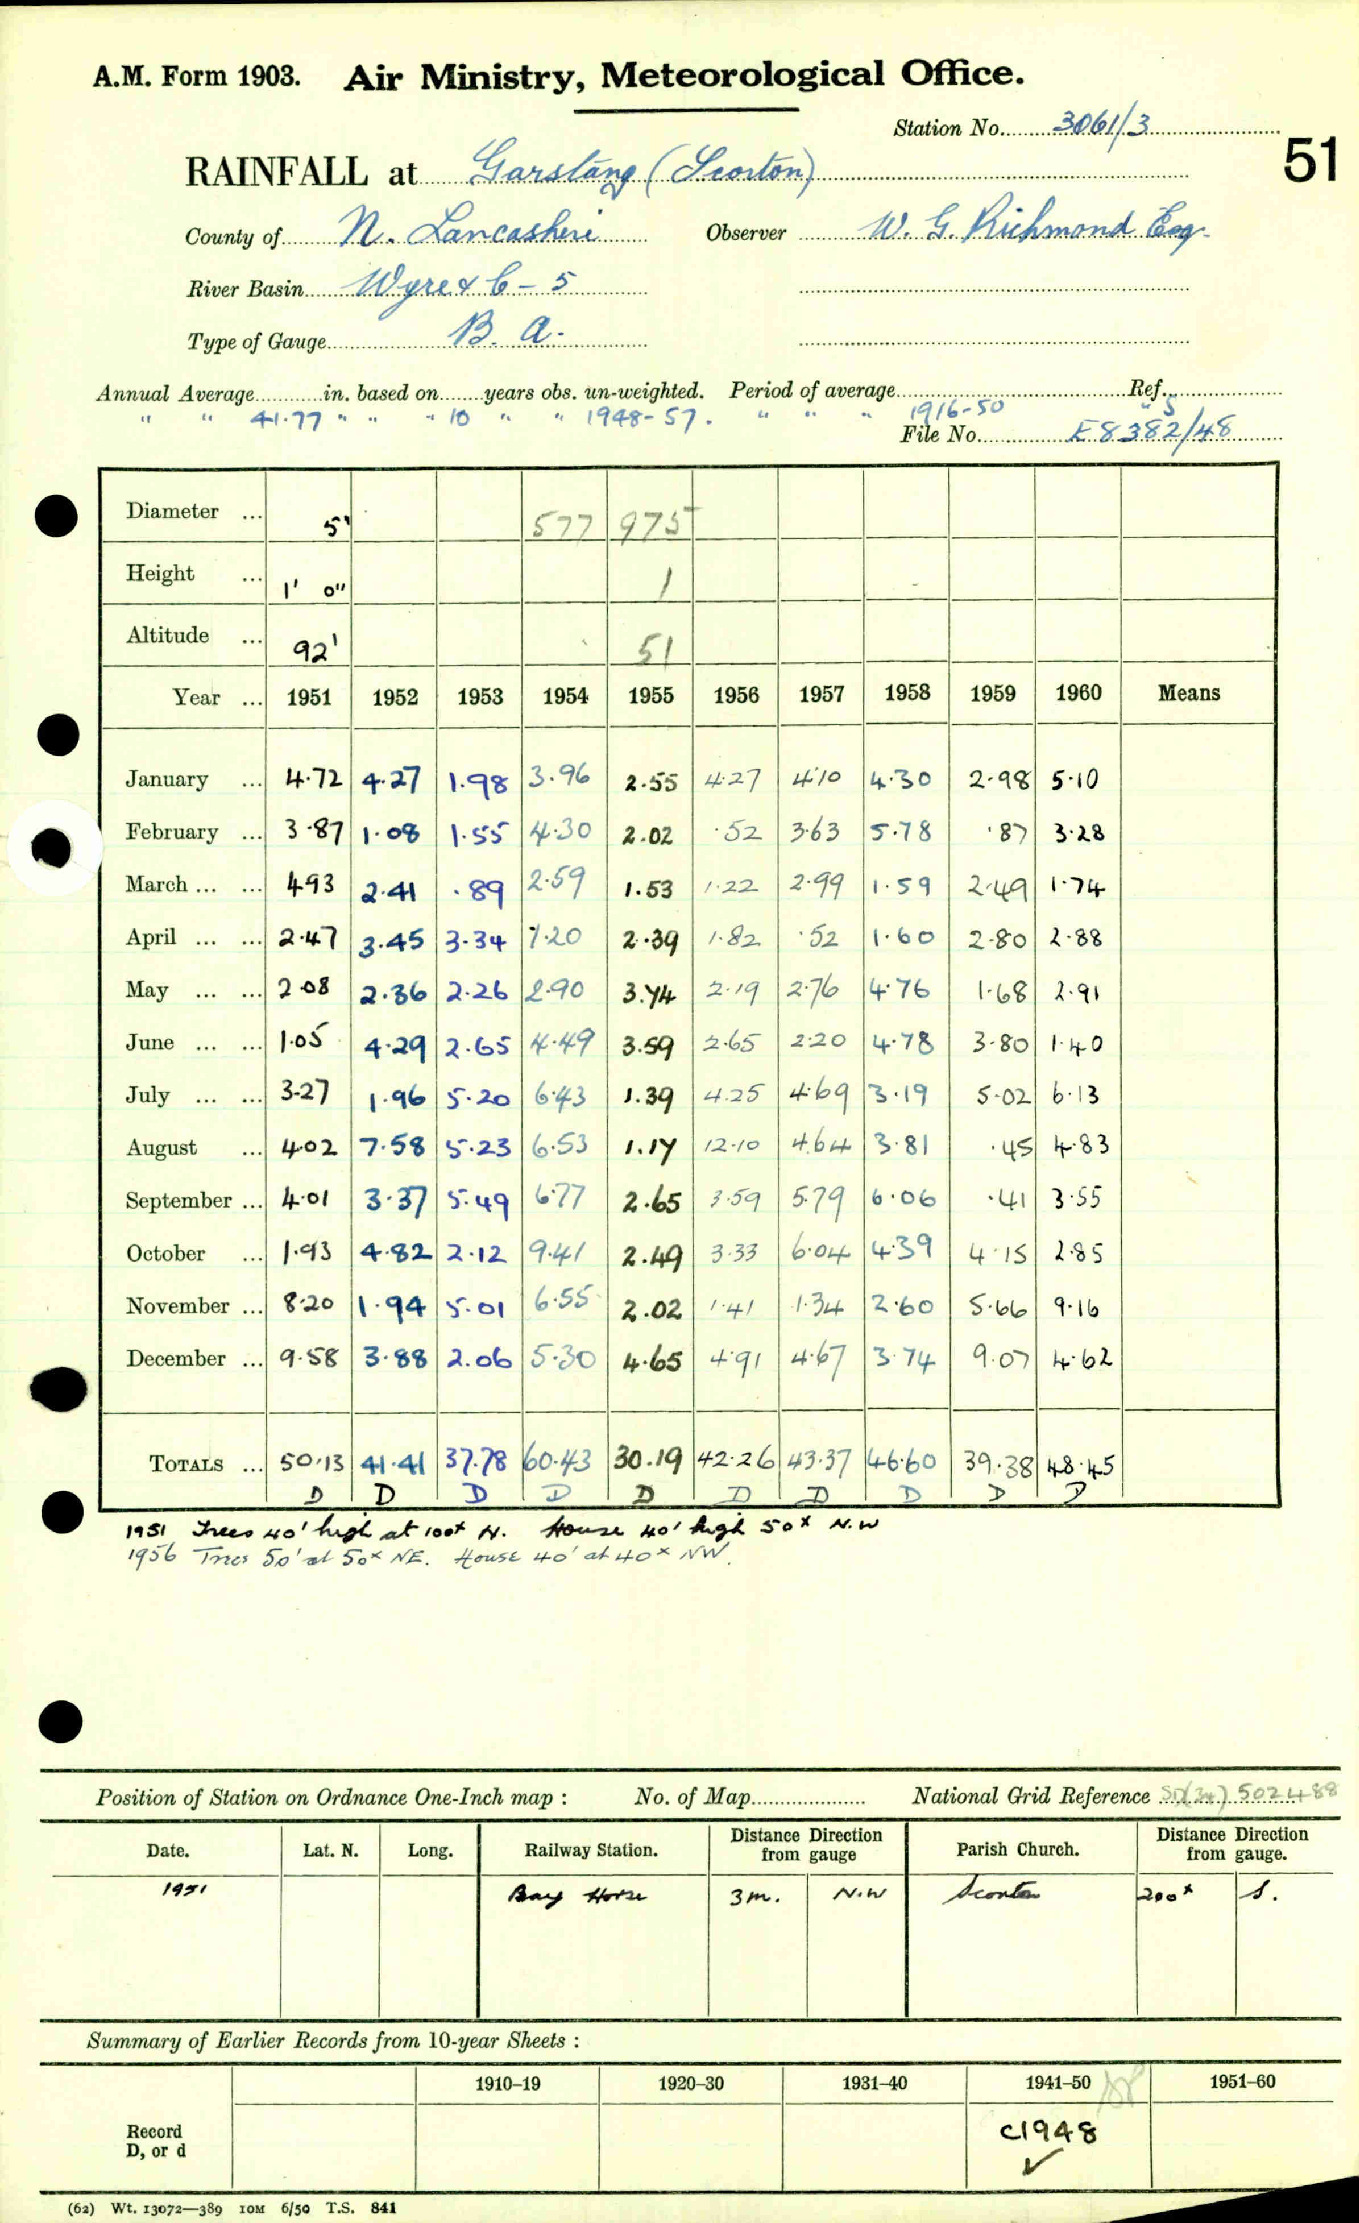 A.M. Form 1903. Air Ministry, Meteorological Office.
Station No. 3061/3
51
RAINFALL at Garstang (Scorton)
County of N. Lancashire Observer W. G. Richmond Esq.
River Basin Wyre & C - 5
Type of Gauge B. A.
Annual Average in. based on years obs. un-weighted. Period of average Ref.
" " 41.77 " " " 10 " " 1948-57. " " " 1916-50 " S
File No. E8382/48
Diameter ... 5" 577 975
Height ... 1' 0" 1
Altitude ... 92' 51
Year ... 1951 1952 1953 1954 1955 1956 1957 1958 1959 1960 Means
January ... 4.72 4.27 1.98 3.96 2.55 4.27 4.10 4.30 2.98 5.10
February ... 3.87 1.08 1.55 4.30 2.02 .52 3.63 5.78 .87 3.28
March ... ... 4.93 2.41 .89 2.59 1.53 1.22 2.99 1.59 2.49 1.74
April ... ... 2.47 3.45 3.34 1.20 2.39 1.82 .52 1.60 2.80 2.88
May ... ... 2.08 2.36 2.26 2.90 3.74 2.19 2.76 4.76 1.68 2.91
June ... ... 1.05 4.29 2.65 4.49 3.59 2.65 2.20 4.78 3.80 1.40
July ... ... 3.27 1.96 5.20 6.43 1.39 4.25 4.69 3.19 5.02 6.13
August ... 4.02 7.58 5.23 6.53 1.17 12.10 4.64 3.81 .45 4.83
September ... 4.01 3.37 5.49 6.77 2.65 3.59 5.79 6.06 .41 3.55
October ... 1.93 4.82 2.12 9.41 2.49 3.33 6.04 4.39 4.15 2.85
November ... 8.20 1.94 5.01 6.55 2.02 1.41 1.34 2.60 5.66 9.16
December ... 9.58 3.88 2.06 5.30 4.65 4.91 4.67 3.74 9.07 4.62
TOTALS ... 50.13 41.41 37.78 60.43 30.19 42.26 43.37 46.60 39.38 48.45
D D D D D D D D D D
1951 Trees 40' high at 100x N. House 40' high 50x N.W
1956 Trees 50' at 50x NE. House 40' at 40x NW.
Position of Station on Ordnance One-Inch map : No. of Map National Grid Reference SD(34) 502488
Date. Lat. N. Long. Railway Station. Distance Direction from gauge Parish Church. Distance Direction from gauge.
1951 Bay Horse 3m. N.W Scorton 200x S.
Summary of Earlier Records from 10-year Sheets :
1910–19 1920–30 1931–40 1941–50 1951–60
Record D, or d c1948 ✓
(62) Wt. 13072—389 10M 6/50 T.S. 841